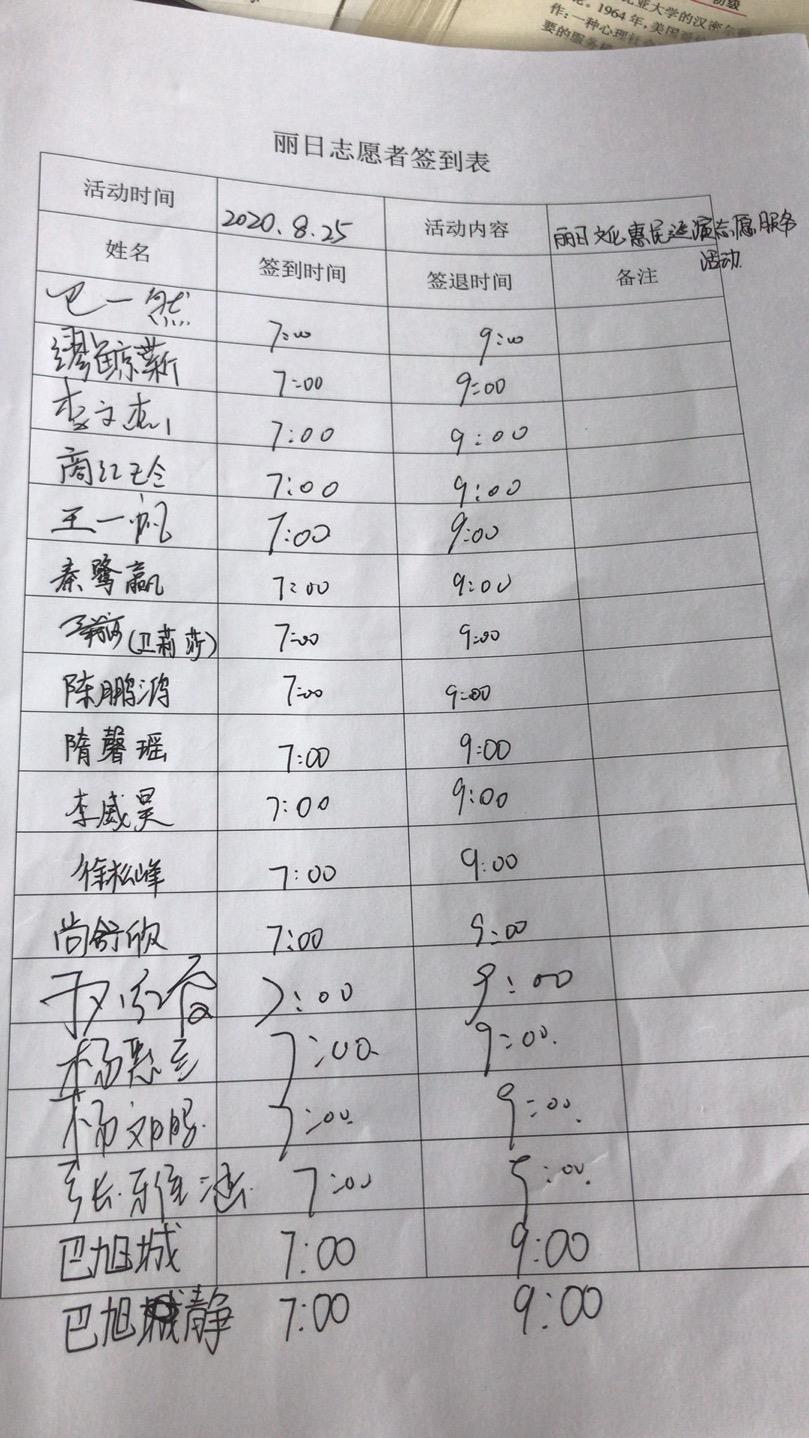 初级
论。1964年,美国
作:一种心理社会
要的服务
丽日志愿者签到表
活动时间 2020.8.25 活动内容 丽日文化惠民巡演志愿服务
活动.
姓名 签到时间 签退时间 备注
一然 7:00 9:00
缪鲸薪 7:00 9:00
李文杰 7:00 9:00
商红玲 7:00 9:00
王一帆 7:00 9:00
秦鹭赢 7:00 9:00
(卫莉莎) 7:00 9:00
陈鹏鸿 7:00 9:00
隋馨瑶 7:00 9:00
李威昊 7:00 9:00
徐松峰 7:00 9:00
尚舒欣 7:00 9:00
7:00 9:00
杨 7:00 9:00.
杨 7:00 9:00.
张雅涵 7:00 9:00.
巴旭城 7:00 9:00
巴旭静 7:00 9:00